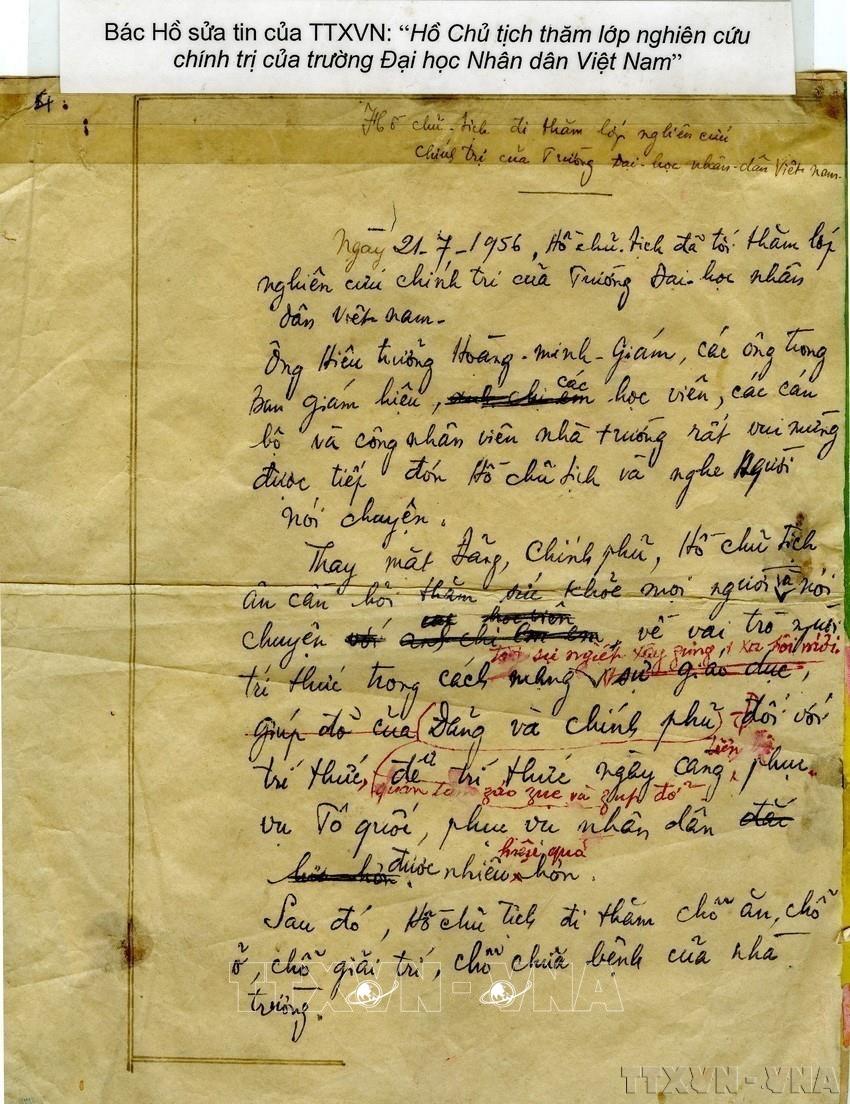 Bác Hồ sửa tin của TTXVN: “Hồ Chủ tịch thăm lớp nghiên cứu
chính trị của trường Đại học Nhân dân Việt Nam”
Hồ chủ-tịch đi thăm lớp nghiên cứu
chính trị của Trường Đại-học nhân-dân Việt-nam-
Ngày 21-7-1956, Hồ chủ-tịch đã tới thăm lớp
nghiên cứu chính trị của Trường Đại-học nhân
dân Việt-nam-
Ông Hiệu trưởng Hoàng-minh-Giám, các ông trong
Ban giám hiệu, anh chị em các học viên, các cán
bộ và công nhân viên nhà trường rất vui mừng
được tiếp đón Hồ chủ tịch và nghe Người
nói chuyện.
Thay mặt Đảng, Chính phủ, Hồ chủ tịch
ân cần hỏi thăm sức khỏe mọi người và nói
các học viên
chuyện với anh chị em, về vai trò người
sự nghiệp xây zựng xã hội mới
trí thức trong cách mạng, sự giáo dục,
giúp đỡ của Đảng và chính phủ đối với
tiến bộ
trí thức, để trí thức ngày càng phục
záo zục và zúp đỡ
vụ Tổ quốc, phục vụ nhân dân đắc
hiệu quả
lực hơn. được nhiều hơn.
Sau đó, Hồ chủ tịch đi thăm chỗ ăn, chỗ
ở, chỗ giải trí, chỗ chữa bệnh của nhà
trường.
TTXVN-VNA
TTXVN-VNA